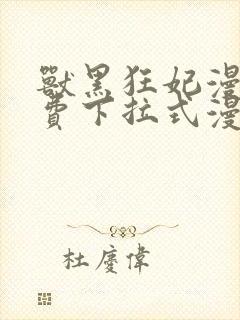 獸黑狂妃漫
費下拉式漫
杜慶偉